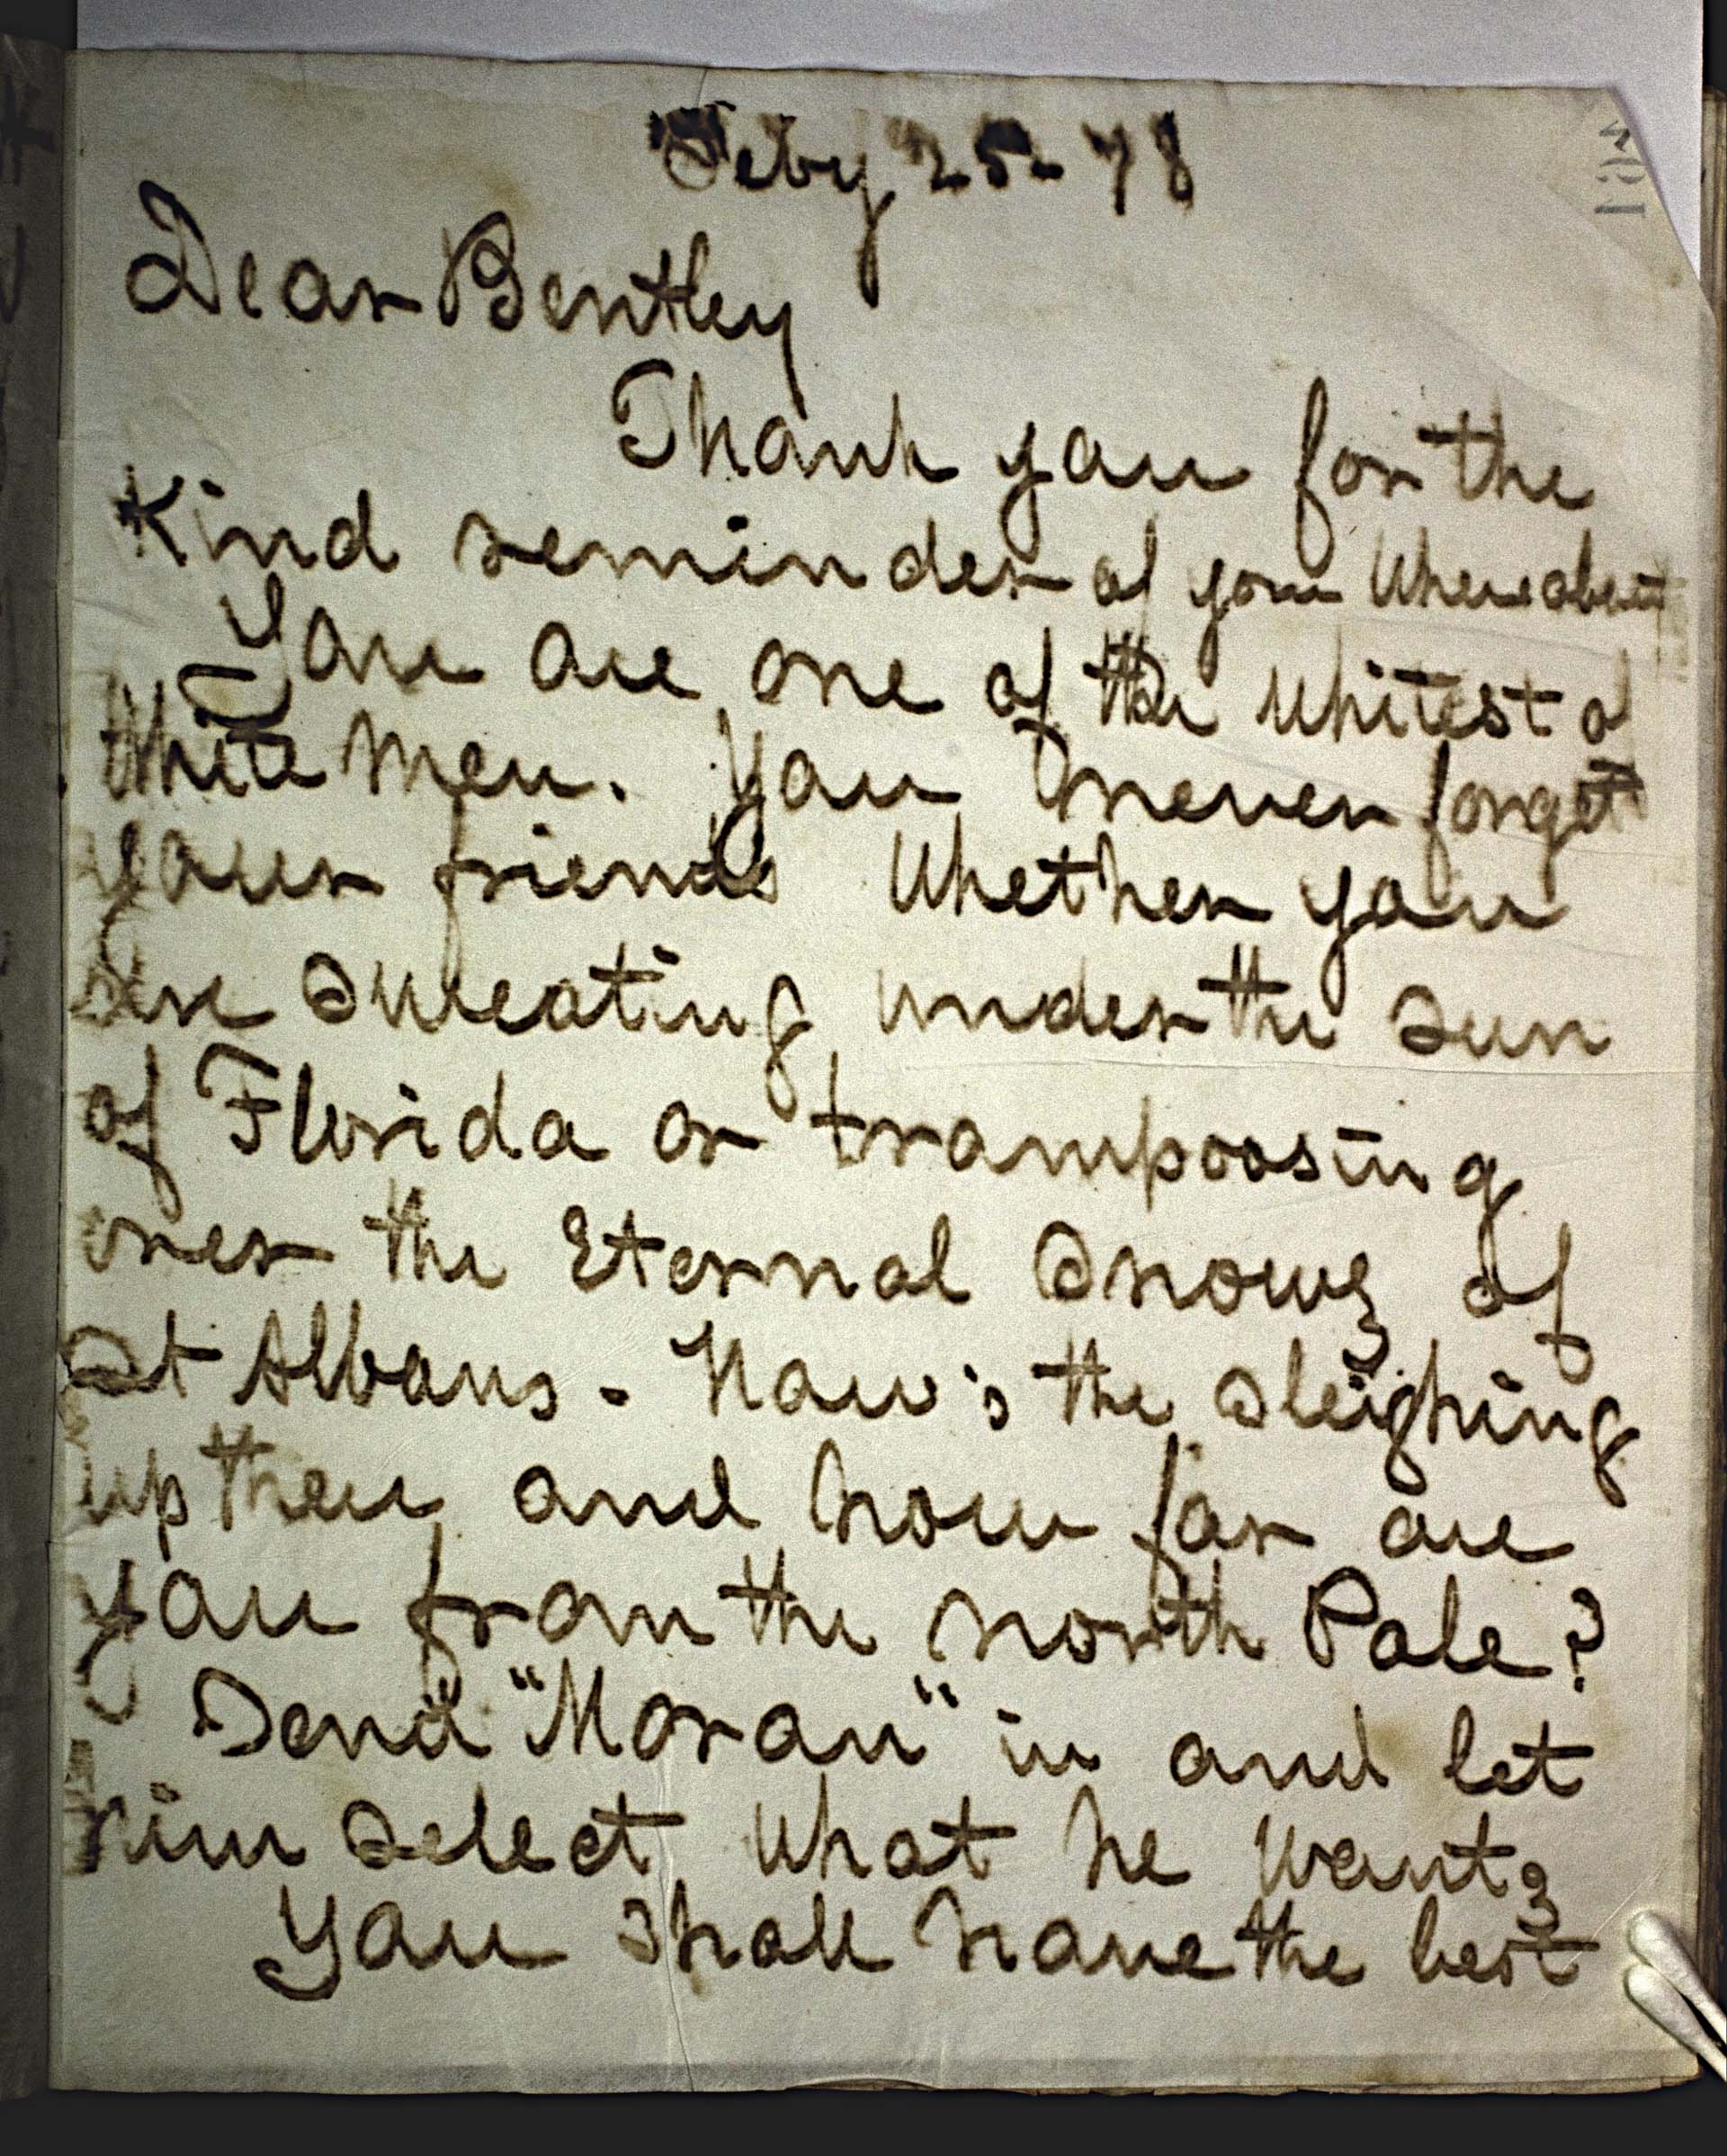 Feby 25-78
Dear Bentley
Thank you for the
Kind reminder of your Whereabout
You are one of the Whitest of
White Men. You never forget
your friends Whether you
are sweating under the sun
of Florida or tramposing
over the Eternal Snows of
St Albans - How's the sleighing
up there and how far are
you from the north Pole?
Send "Moran" in and let
him select What he Wants
You shall have the best